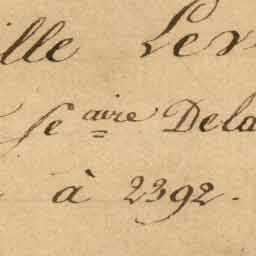 ille Ler
Se aire Dela
à 2392.